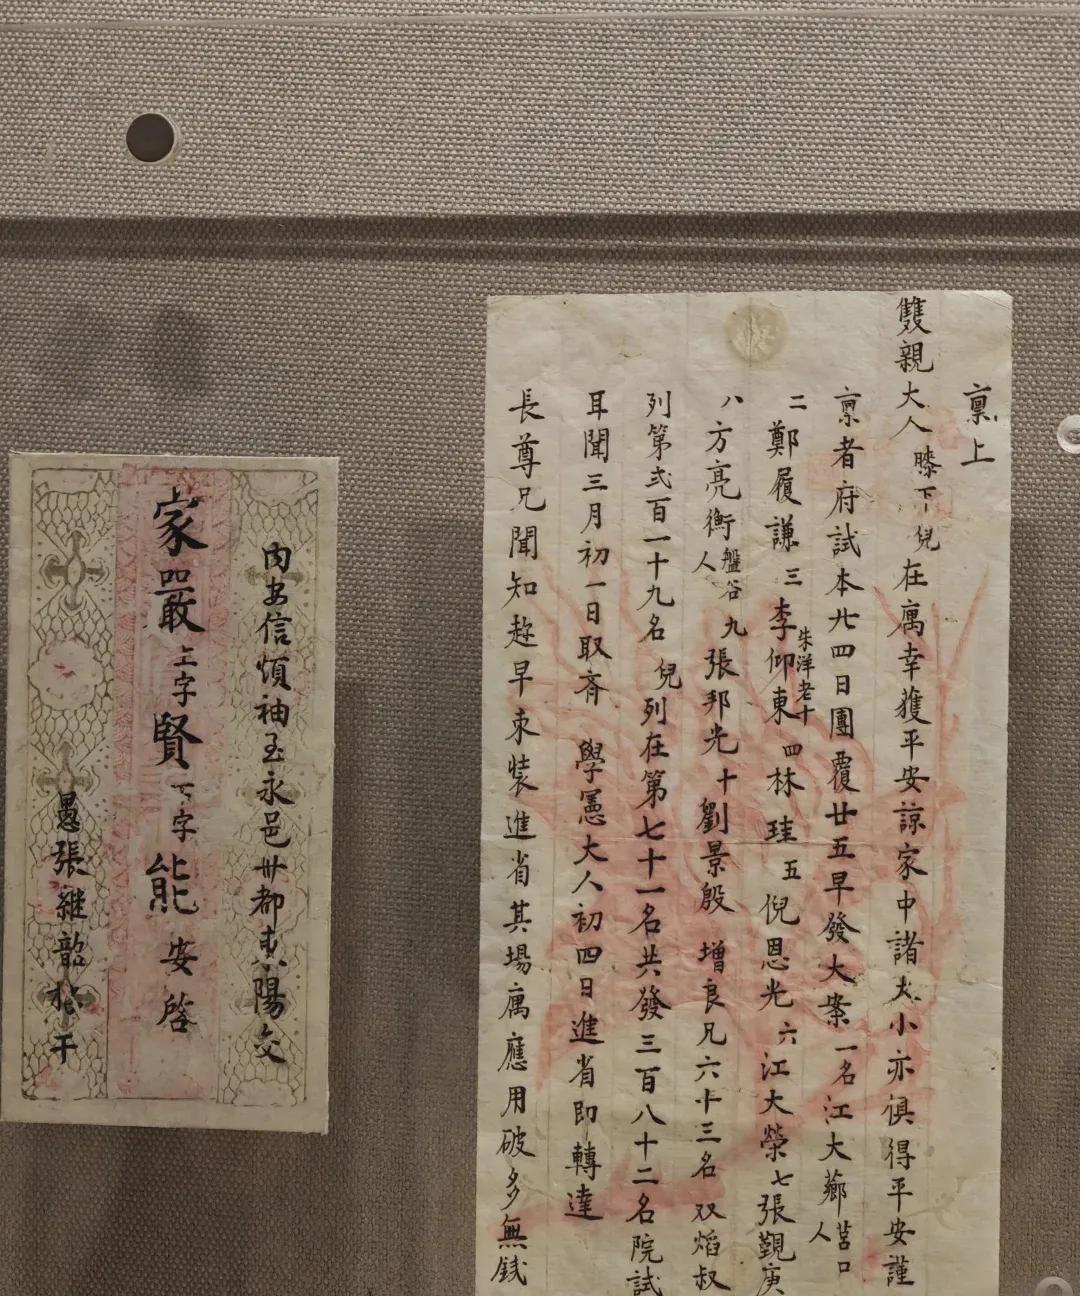 稟上
雙親大人膝下兒在寓幸獲平安諒家中諸大小亦俱得平安謹
稟者府試本廿四日團覆廿五早發大案一名江大薌莒口人
二鄭履謙三李仰東朱洋老十四林珪五倪恩光六江大榮七張覲庚
八方亮衡盤谷人九張邦光十劉景殷增良兄六十三名双焰叔
列第弍百一十九名兒列在第七十一名共發三百八十二名院試
耳聞三月初一日取齊學憲大人初四日進省即轉達
長尊兄聞知趂早束裝進省其場寓應用破多無錢
內安信煩袖至永邑卅都東陽交
家嚴上字賢下字能安啓
愚張維韶